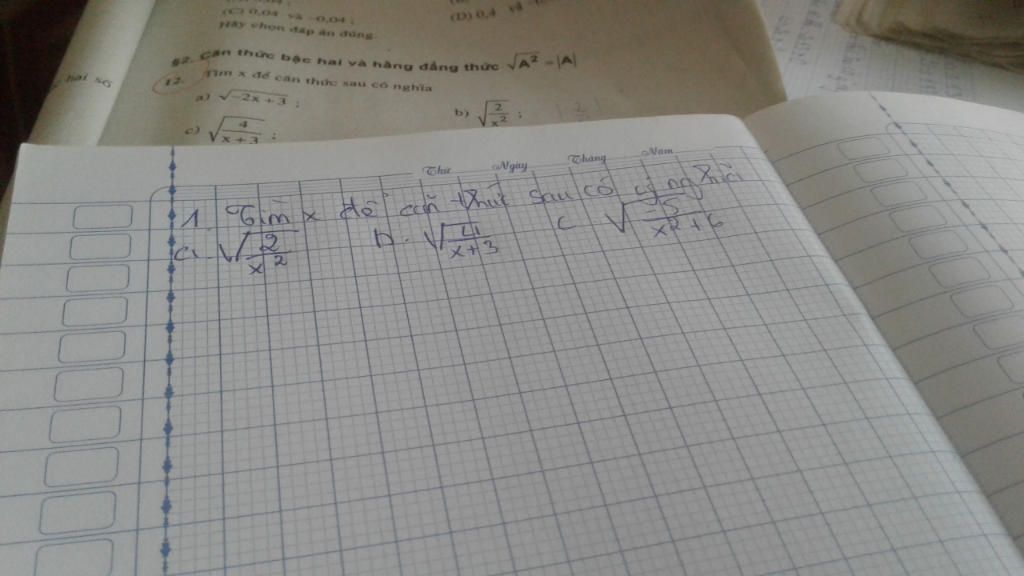 (C) 0,04 và −0,04 ;
(D) 0,4 và
Hãy chọn đáp án đúng.
§2. Căn thức bậc hai và hằng đẳng thức √A² = |A|
12. Tìm x để căn thức sau có nghĩa
a) √(−2x + 3) ;
b) √(2/x²) ;
c) √(4/(x + 3)) ;
hai số
Thứ Ngày Tháng Năm
1. Tìm x để căn thức sau có ý nghĩa
a. √(2/x²) b. √(4/(x+3)) c √(−5/(x²+6))